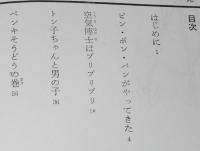 目次
はじめに 1
ピン・ポン・パンがやってきた 4
空気博士はプリプリプリ 18
トン子ちゃんと男の子 36
ペンキそうどうの巻 55